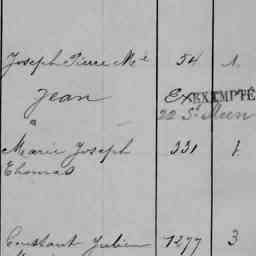 Joseph Pierre Mie 54 1.
Jean Ex EXEMPTÉ
22 St Meen
a
Marie Joseph 331 1.
Thomas
Constant Julien 1277 3